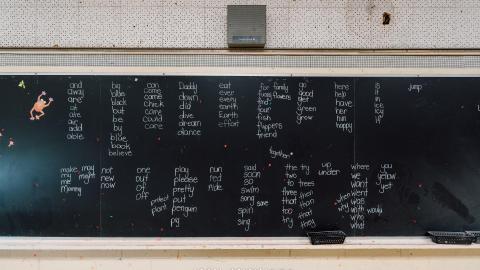 and
away
are
at
ate
air
add
able
big
blue
black
but
be
by
blue
book
believe
can
come
came
check
care
could
care
Daddy
down
did
do
dive
dream
dance
eat
ever
every
earth
Earth
effort
for family
funny flowers
find
four
fish
flippers
friend
together
go
good
get
green
grow
here
help
have
her
ham
happy
is
it
in
ice
icic
if
jump
make may
my might
me
Mommy
not
new
now
one
out
of
off
protect
plant
play
please
pretty
put
penguin
pig
run
red
ride
said
soon
so
swim
song save
spin
sing
the try up
two under
to trees
three then
that than
too that
try they
where
we
want
went
was
with
who
what
when
why
would
you
yellow
yet